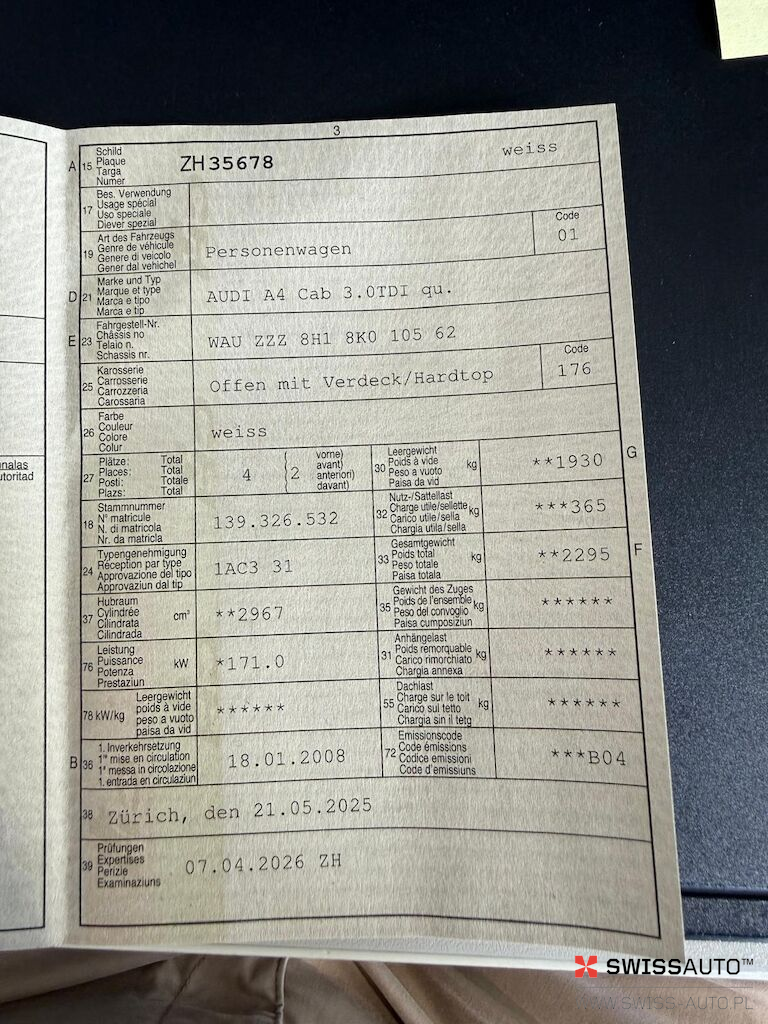 3
A 15 Schild
Plaque
Targa
Numer
ZH 35678 weiss
17 Bes. Verwendung
Usage spécial
Uso speciale
Diever spezial
19 Art des Fahrzeugs
Genre de véhicule
Genere di veicolo
Gener dal vehichel
Personenwagen
Code
01
D 21 Marke und Typ
Marque et type
Marca e tipo
Marca e tip
AUDI A4 Cab 3.0TDI qu.
E 23 Fahrgestell-Nr.
Châssis no
Telaio n.
Schassis nr.
WAU ZZZ 8H1 8K0 105 62
25 Karosserie
Carrosserie
Carrozzeria
Carossaria
Offen mit Verdeck/Hardtop
Code
176
26 Farbe
Couleur
Colore
Colur
weiss
27 Plätze: Total
Places: Total
Posti: Totale
Plazs: Total
4 { 2 vorne)
avant)
anteriori)
davant)
30 Leergewicht
Poids à vide kg
Peso a vuoto
Paisa da vid
**1930
G
18 Stammnummer
N° matricule
N. di matricola
Nr. da matricla
139.326.532
32 Nutz-/Sattellast
Charge utile/sellette kg
Carico utile/sella
Chargia utila/sella
***365
24 Typengenehmigung
Réception par type
Approvazione del tipo
Approvaziun dal tip
1AC3 31
33 Gesamtgewicht
Poids total kg
Peso totale
Paisa totala
**2295
F
37 Hubraum
Cylindrée cm³
Cilindrata
Cilindrada
**2967
35 Gewicht des Zuges
Poids de l'ensemble kg
Peso del convoglio
Paisa cumposiziun
******
76 Leistung
Puissance kW
Potenza
Prestaziun
*171.0
31 Anhängelast
Poids remorquable kg
Carico rimorchiato
Chargia annexa
******
78 kW/kg Leergewicht
poids à vide
peso a vuoto
paisa da vid
******
55 Dachlast
Charge sur le toit kg
Carico sul tetto
Chargia sin il tetg
******
B 36 1. Inverkehrsetzung
1re mise en circulation
1a messa in circolazione
1. entrada en circulaziun
18.01.2008
72 Emissionscode
Code émissions
Codice emissioni
Code d'emissiuns
***B04
38 Zürich, den 21.05.2025
39 Prüfungen
Expertises
Perizie
Examinaziuns
07.04.2026 ZH
SWISSAUTO™
WWW.SWISS-AUTO.PL